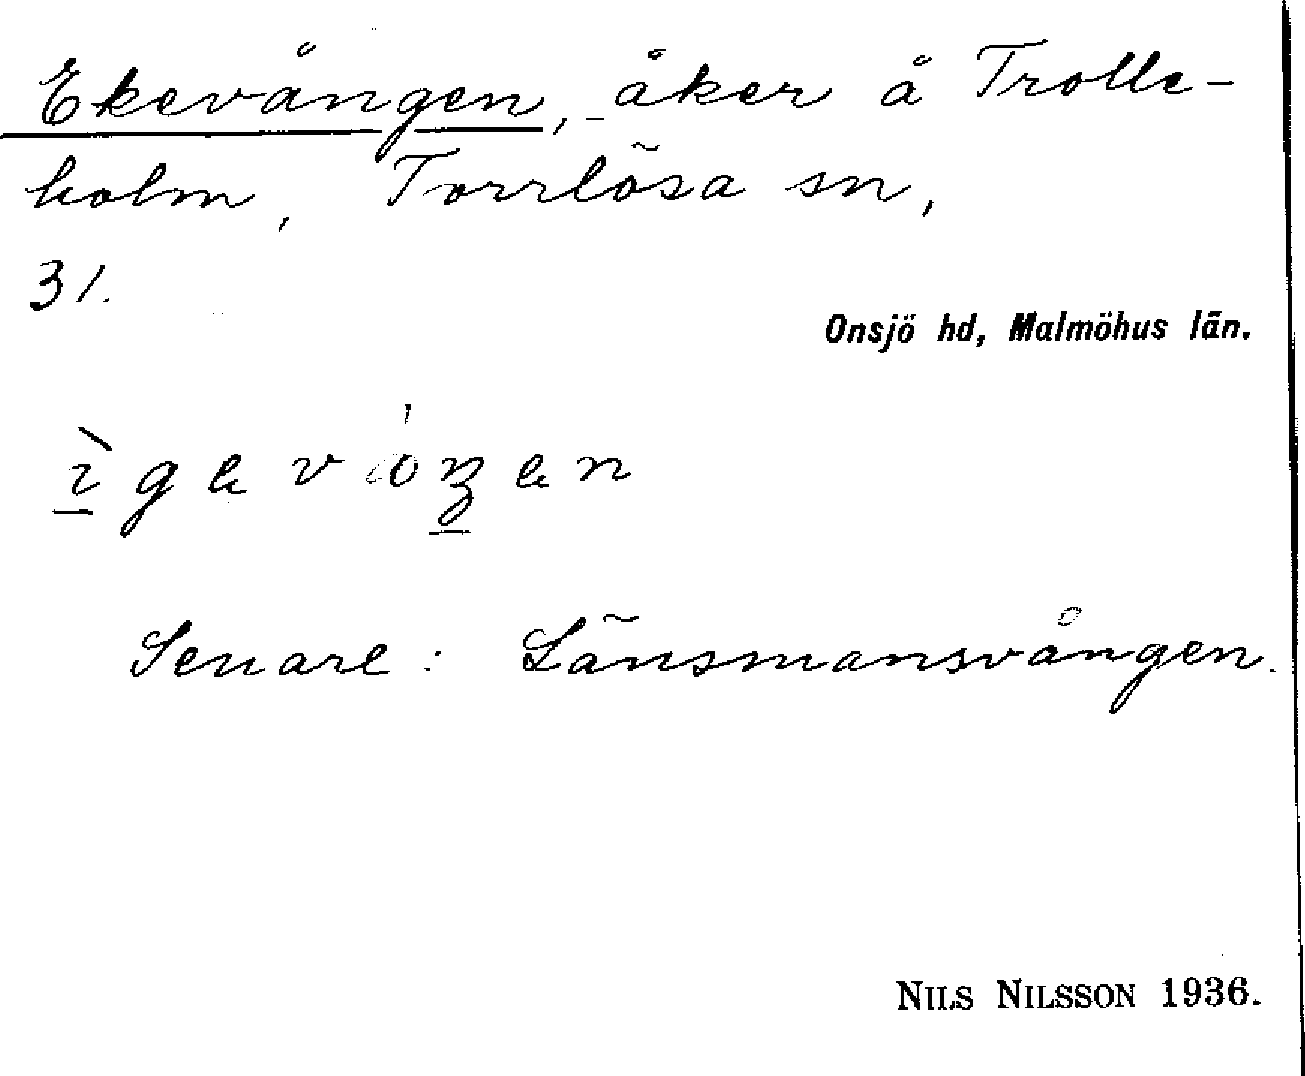 Ekevången, åker å Trolle-
holm, Torrlösa sn,
31.
Onsjö hd, Malmöhus län.
Senare: Länsmansvången.
NILS NILSSON 1936.